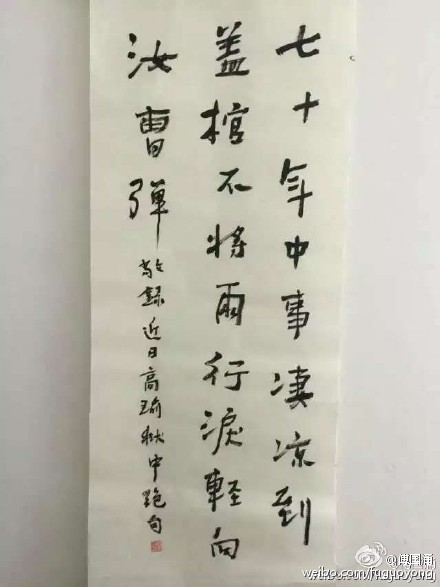 七十年中事凄凉到
蓋棺不将兩行淚輕向
汝曹彈
敬錄近日高瑜狱中绝句
@傅国涌
weibo.com/fuguoyong